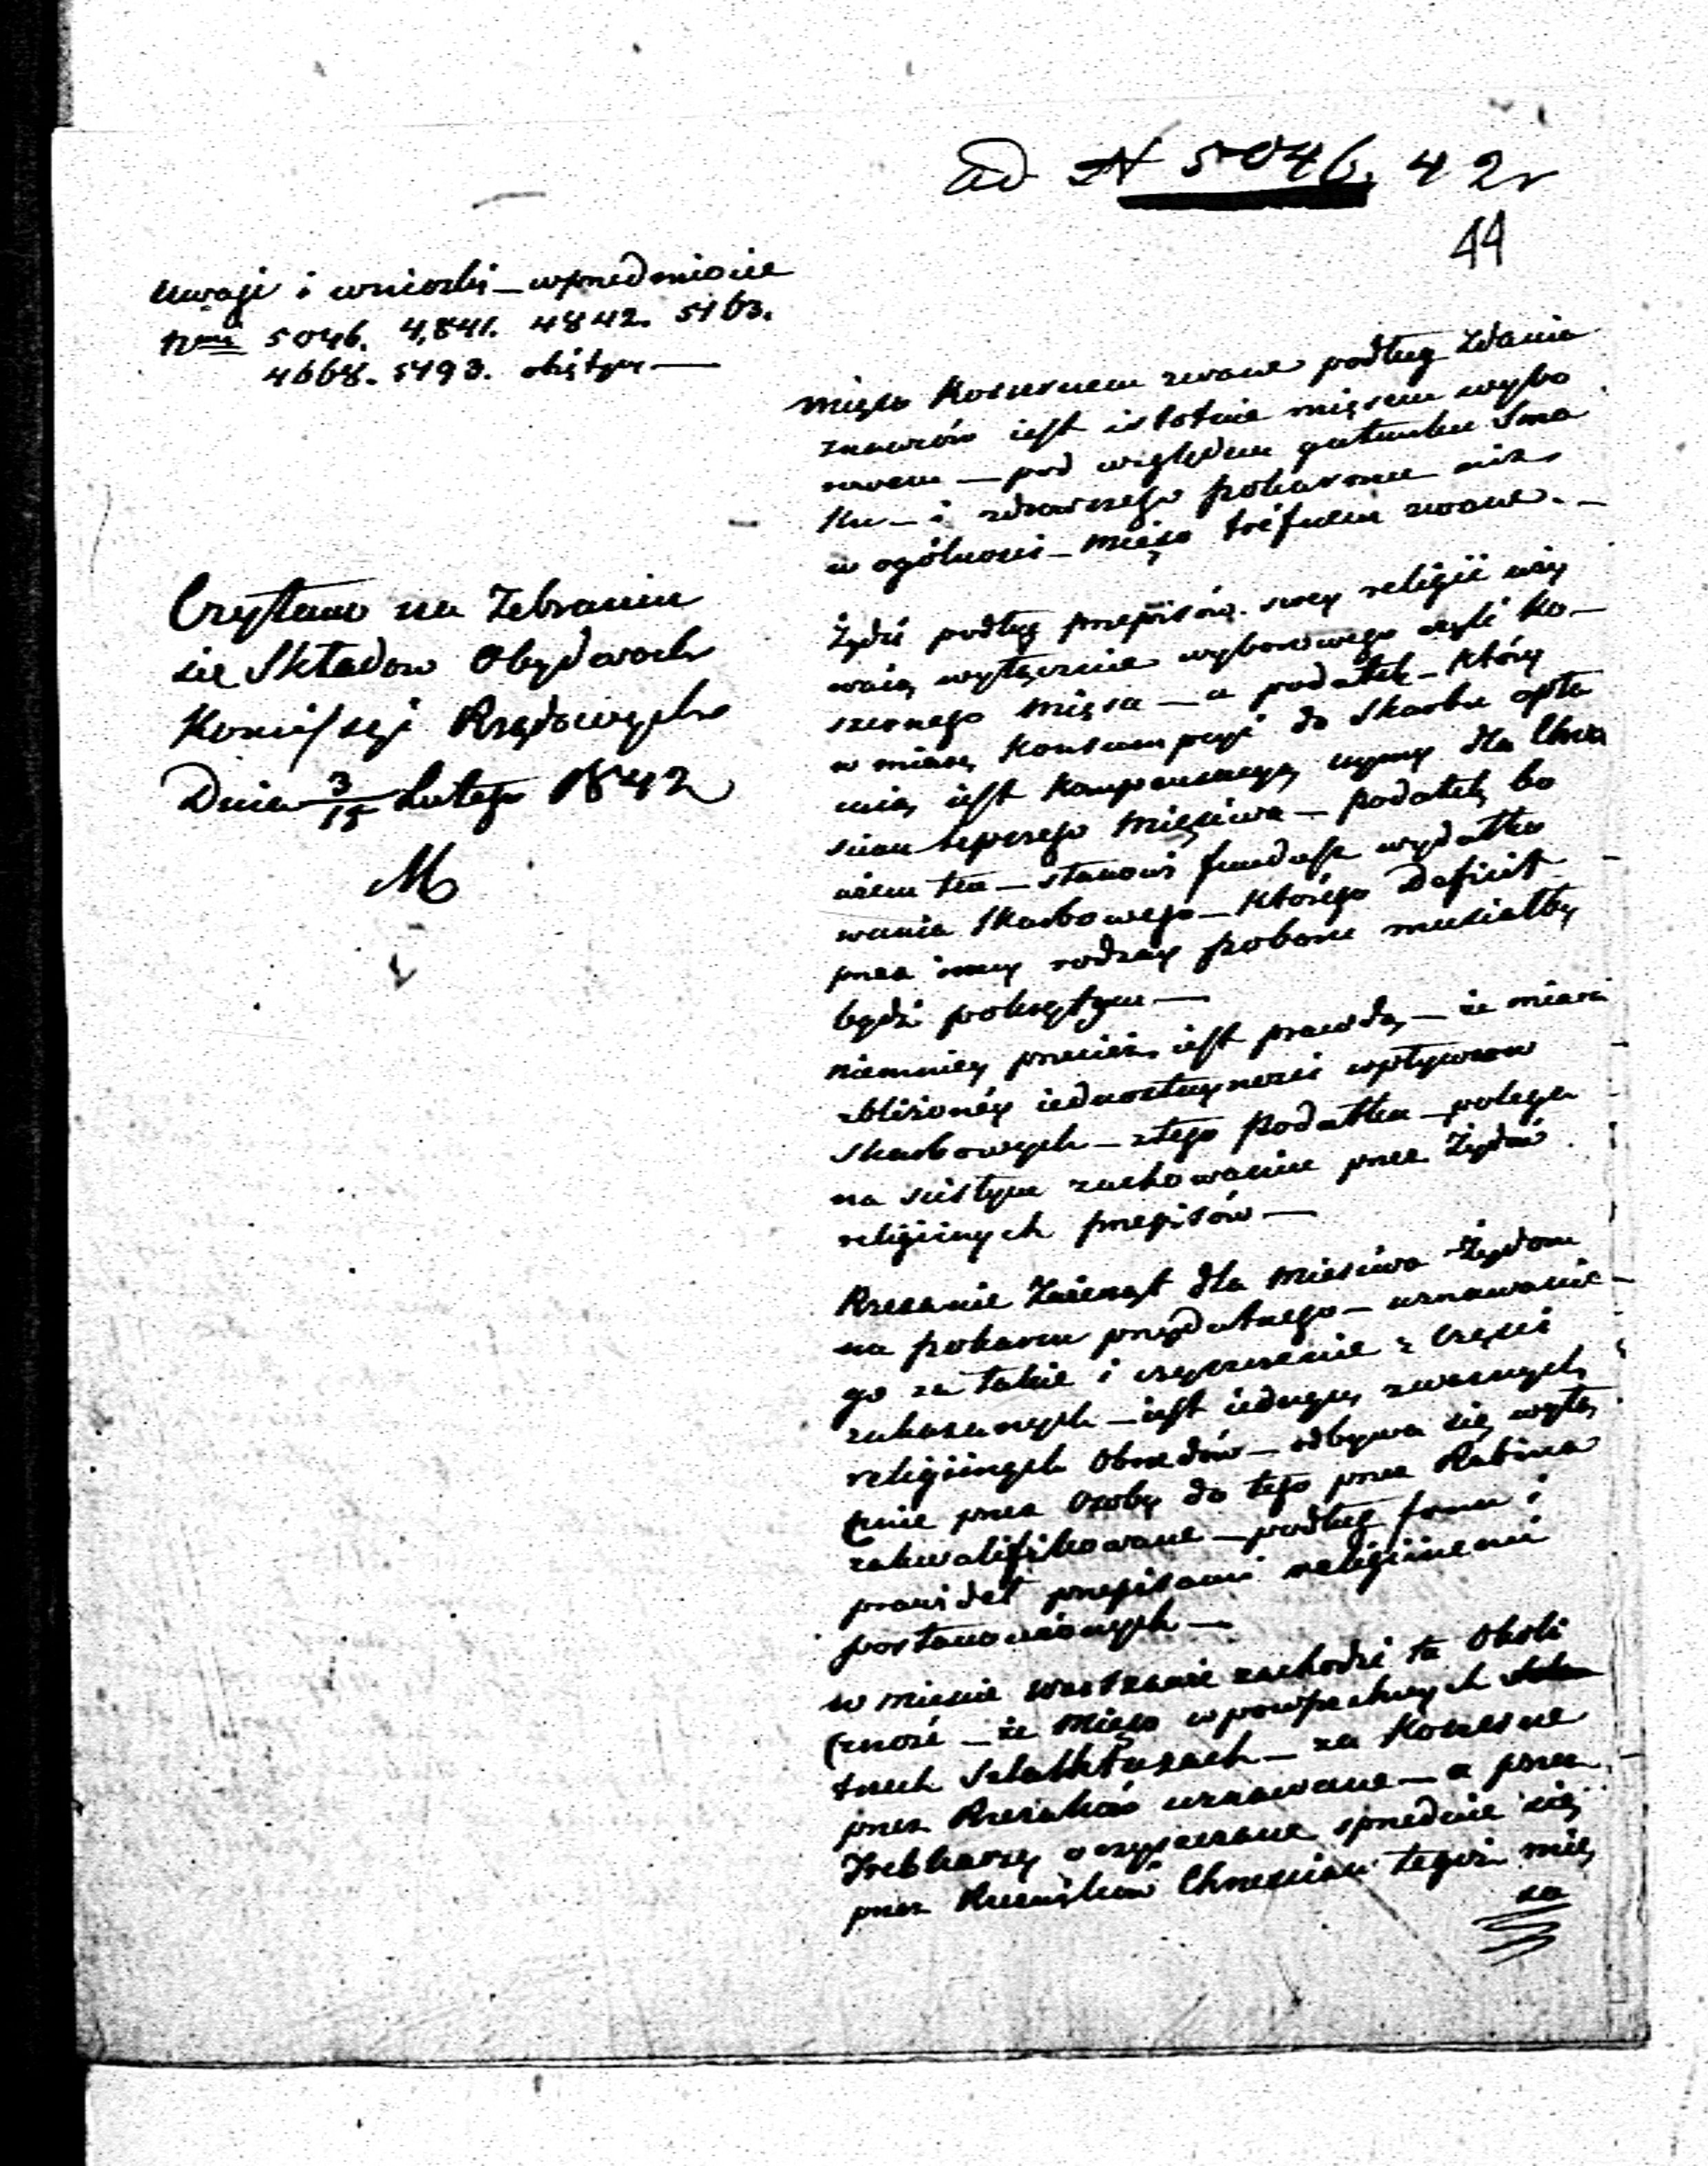 ad N 5046. 42r
44
Uwagi i wnioski _ w przedmiocie
Nrmi 5046. 4,841. 4842. 5163.
4668. 5493. objętym —
Czytano na Zebraniu
się Składow Obydwoch
Komissyi Rządowych
Dnia 3/15 Lutego 1842
M
Mięso Koszernem zwane podług Zdania
znawców iest istotnie mięsem wybo
rowem — pod względem gatunku Sma
ku — i zdrowszego pokarmu niż
w ogólności — Mięso tréfnem zwane. —
Żydzi podług przepisów swey religii uży
waią wyłącznie wyborowego czyli Ko—
szernego mięsa — a podatek — który
w miarę Konsumpcyi do Skarbu opła
caią iest Kompensacyą uymy dla Chrze
ścian lepszego Mięsiwa — podatek bo
wiem ten — stanowi fundusz wydatko
wania Skarbowego — którego Deficit
przez inny rodzay poboru musiałby
bydź pokrytym —
Niemniey przecież iest prawdą — że miara
zbliżonéy iednostayności wpływow
Skarbowych — z tego Podatku — polega
na ścisłym zachowaniu przez Żydów
religiinych przepisów —
Rzezanie Zwierząt dla Mięsiwa Żydom
na pokarm przydatnego — uznawanie
go za takie i czyszczenie z Części
zakazanych — iest iednym z ważnych
religiinych Obrzedów — odbywa się wyłą
cznie przez Osoby do tego przez Rabina
zakwalifikowane — podług form i
prawideł przepisami religiinemi
postanowionych —
w Mieście Warszawie zachodzi ta Okoli
czność — że Mięso w powszechnych
trzech Szlachtuzach — za Koszerne
przez Rzezaków uznawane — a przez
Trebkarzy oczyszczane sprzedaie się
przez Rzeźników Chrześcian tegoż mię
sa